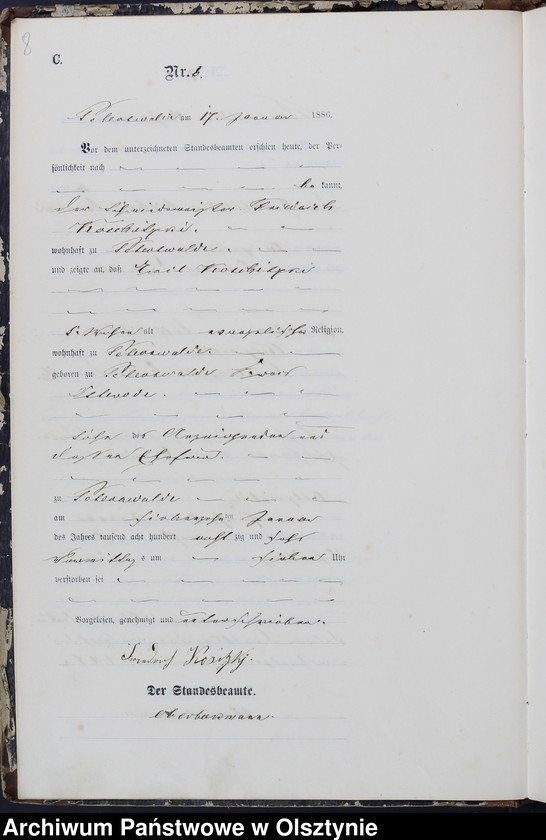 8
C.
Nr. 6.
Peterswalde am 17. Januar 1886.
Vor dem unterzeichneten Standesbeamten erschien heute, der Per-
sönlichkeit nach
be kannt,
der Schneidermeister Friedrich
wohnhaft zu Peterswalde
und zeigte an, daß Emil
Wochen alt evangelischer Religion,
wohnhaft zu Peterswalde
geboren zu Peterswalde Kreis
Osterode.
Sohn des Anzeigenden und
dessen Ehefrau
zu Peterswalde
am siebenzehnten Januar
des Jahres tausend acht hundert achtzig und sechs
Vormittags um sieben Uhr
verstorben sei
Vorgelesen, genehmigt und unterschrieben.
Der Standesbeamte.
Archiwum Państwowe w Olsztynie